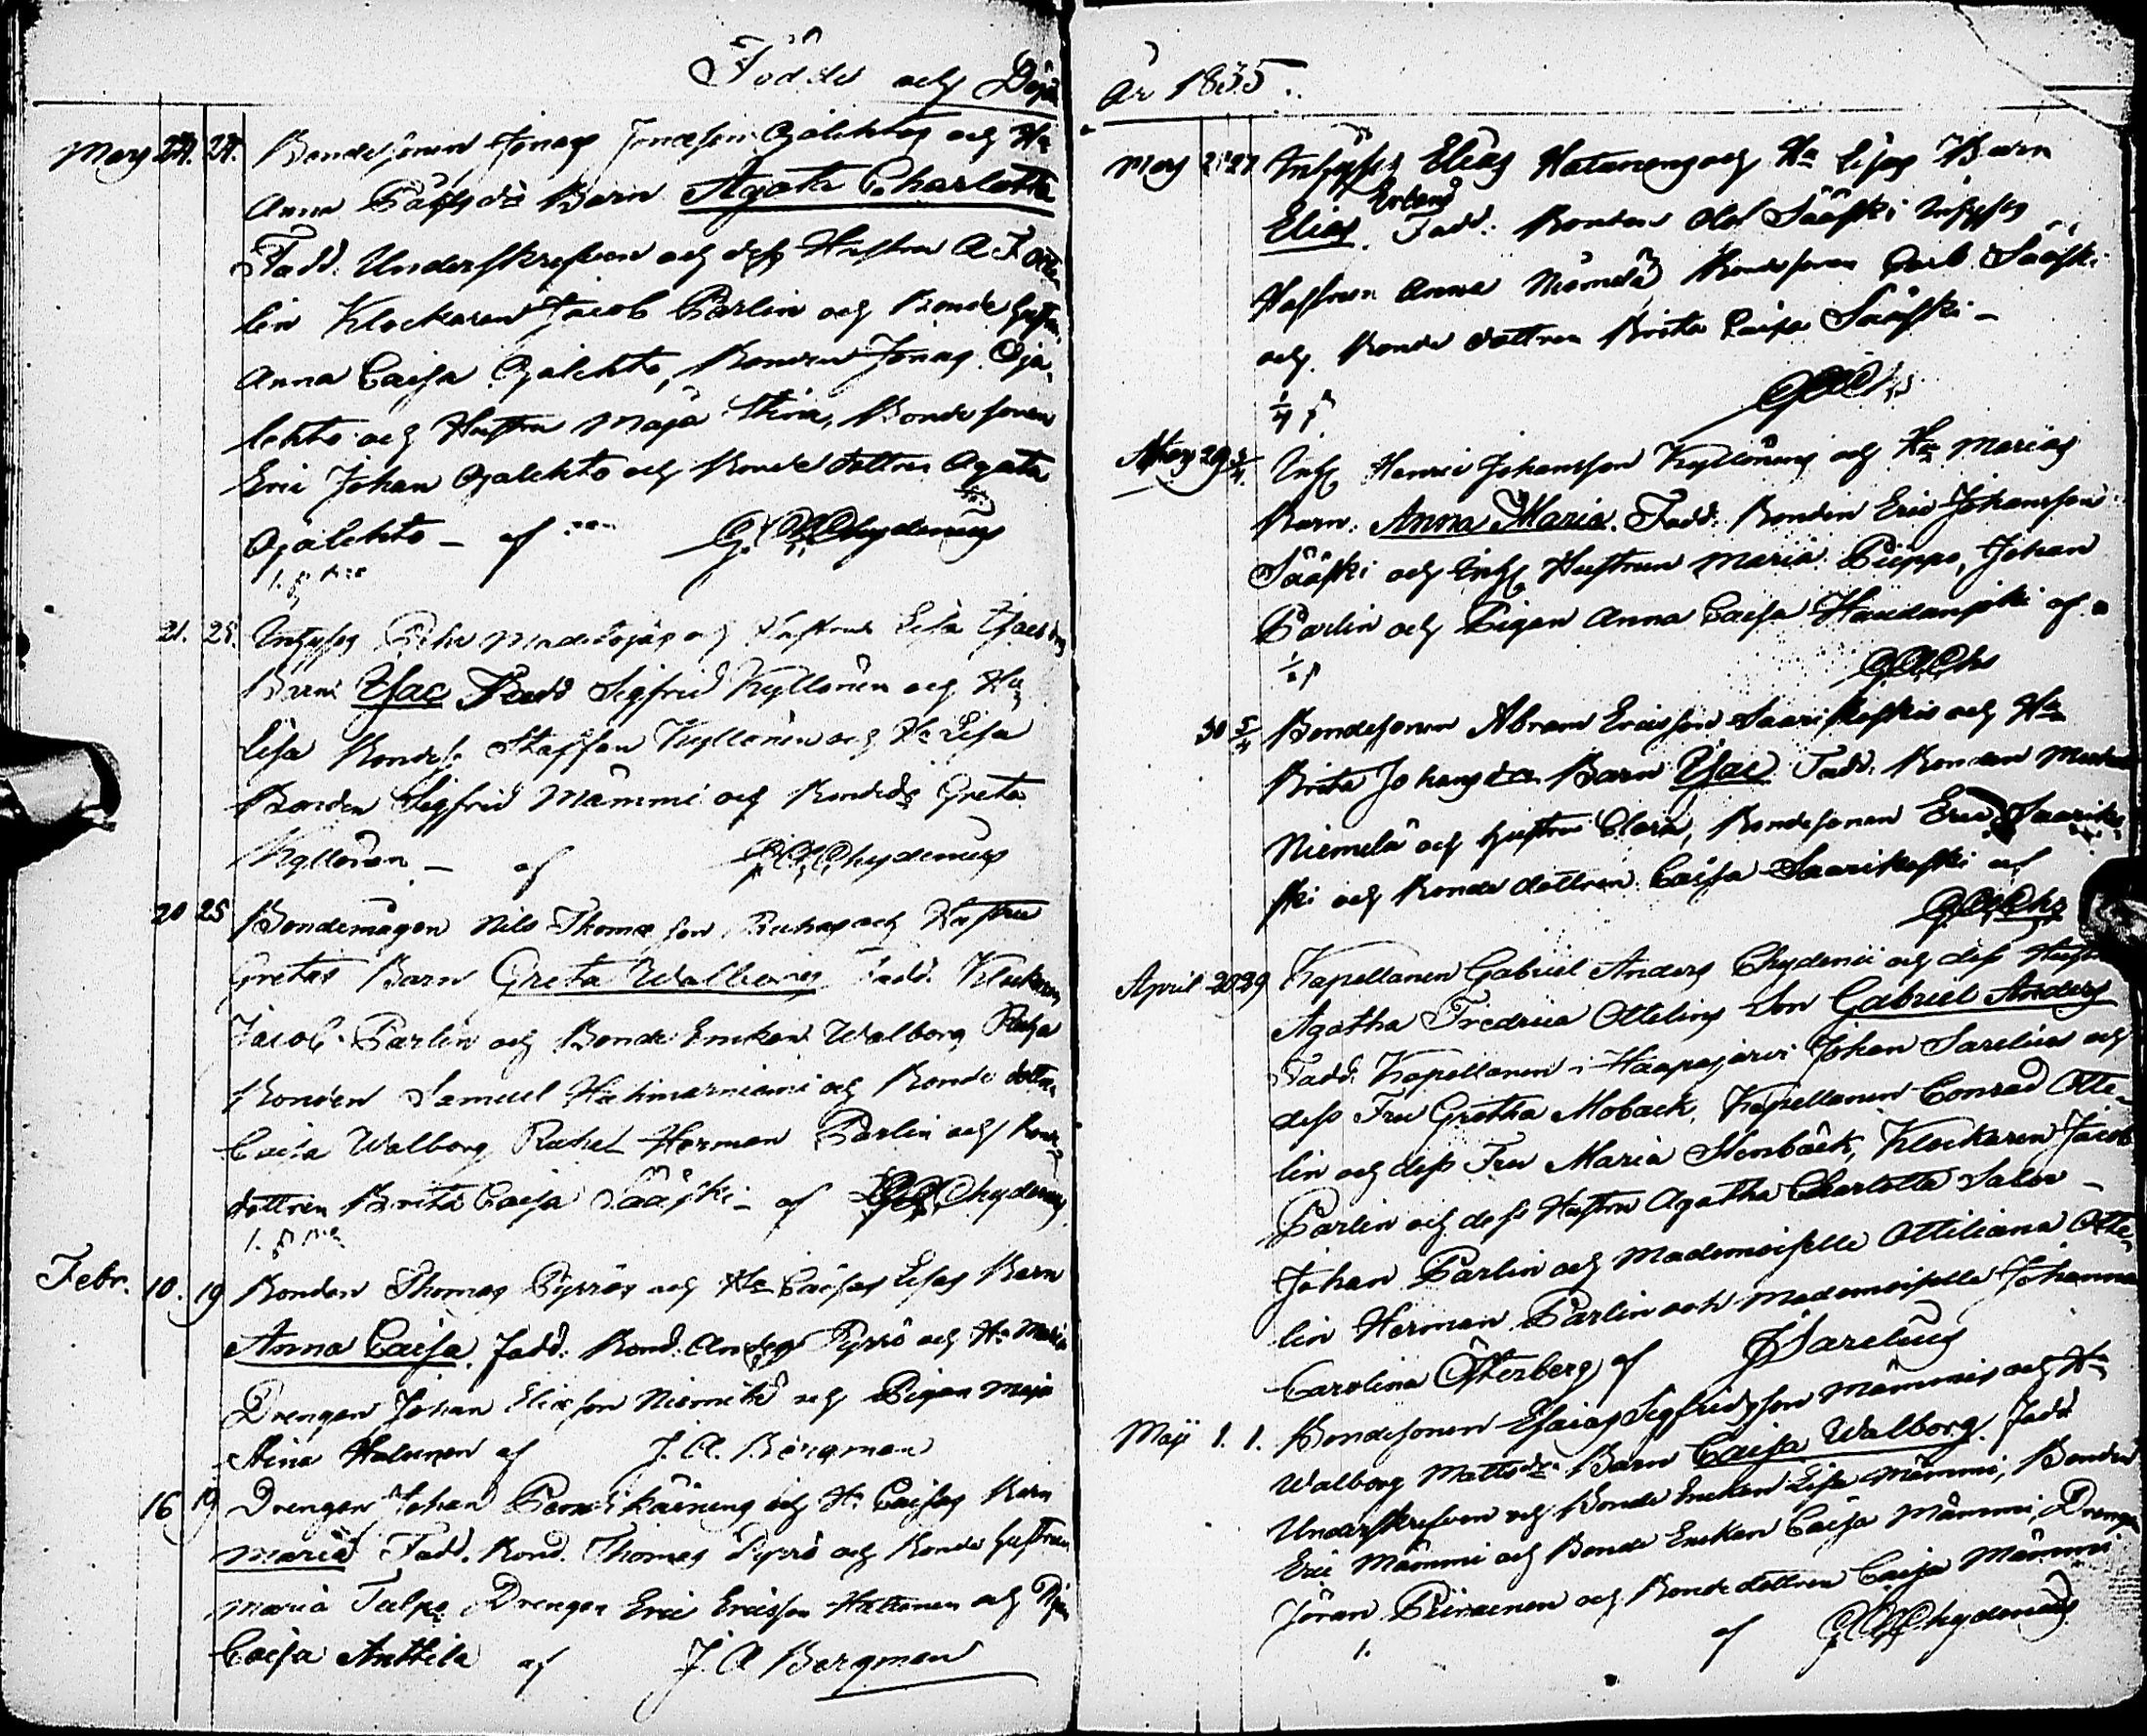 Födde och Döpte
Mars 24. 24. Bondesonen Jonas Jonasson Ojalehtos och Hu
Anna Pålsdr Barn Agata Charlotta
Fadd. Underskrefven och dess Hustru A F Otte
lin Klockaren Jacob Parlin och Bonde hustru
Anna Caisa Ojalehto, Bonden Jonas Oja
lehto och Hustru Maja Stina, Bondesonen
Eric Johan Ojalehto och Bondedottren Agata
Ojalehto – af G. A. Chydenius
21. 25. Inhyses Hustrun Lisa
Barn Isac Fadd Sigfrid Kyllönen och Hu
Lisa Bondes. Staffan Kyllönen och Hu Lisa
Bonden Sigfrid Mämmi och Bonded Greta
Kyllönen – af G. A. Chydenius
20 25 Bondemågen Nils Thomasson Ruhas och Hustru
Gretas Barn Greta Walborg Fadd. Klockaren
Jacob Parlin och Bonde Enckan Walborg Ruha
Bonden Samuel och Bonde dottren
Caisa Walborg Ruha Herman Parlin och Bonde
dottren Brita Caisa Sääski – af G. A. Chydenius
Febr. 10. 19 Bonden Thomas Pyrrös och Hu Caisas Lisas Barn
Anna Caisa. Fadd. Bond. Anders Pyrrö och Hu Maria
Drengen Johan Eliasson Niemelä och Pigan Maja
Stina Halonen af J. A. Bergman
16 19 Drengen Johan och Hu Caisas Barn
Maria Fadd. Bond. Thomas Pyrrö och Bonde hustrun
Maria Tulpo Drengen Eric Ericsson Hattunen och Pigan
Caisa Anttila af J. A Bergman
År 1835.
Mars 27 Inhyses Elias Hatanens och Hu Lisas Barn
Elias Erland Fadd: Bonden Olof Sääski Inhyses
Hustrun Anna Niemelä Bondesonen Carl Sääski
och Bonde dottren Brita Caisa Sääski –
G A Chs
Mars 29 3/4. Inh Henric Johansson Kyllönens och Hu Marias
Barn. Anna Maria. Fadd: Bonden Eric Johansson
Sääski och Inh Hustrun Maria Pieppo, Johan
Parlin och Pigan Anna Caisa Haudanjoki af
G. A. Chs
30 5/4 Bondesonen Abram Ericsson Saarikoskis och Hu
Brita Johansdr Barn Isac Fadd. Bonden
Niemelä och hustru Clara, Bondesonen Eric Saariko
ski och Bonde dottren Caisa Saarikoski af
G. A. Chs
April 20 29 Kapellanen Gabriel Anders Chydenii och dess Hustru
Agatha Fredrica Ottelins Son Gabriel Anders
Fadd. Kapellanen i Haapajärvi Johan Sarelius och
dess Fru Gretha Moback, Kapellanen Conrad Otte-
lin och dess Fru Maria Stenbäck, Klockaren Jacob
Parlin och dess Hustru Agatha Charlotta Salov –
Johan Parlin och Mademoiselle Ottiliana Otte
lin Herman Parlin och Mademoiselle Johanna
Carolina Österberg af J Sarelius
Maji 1. 1. Bondesonen Esaias Sigfridsson Mämmis och Hu
Walborg Mattsdr Barn Caisa Walborg. Fadd
Underskrefven och Bonde Enckan Lisa Mämmi, Bonden
Eric Mämmi och Bonde Enckan Caisa Mämmi, Drengen
Jöran Piirainen och Bondedottren Caisa Mämmi
af G. A. Chydenius